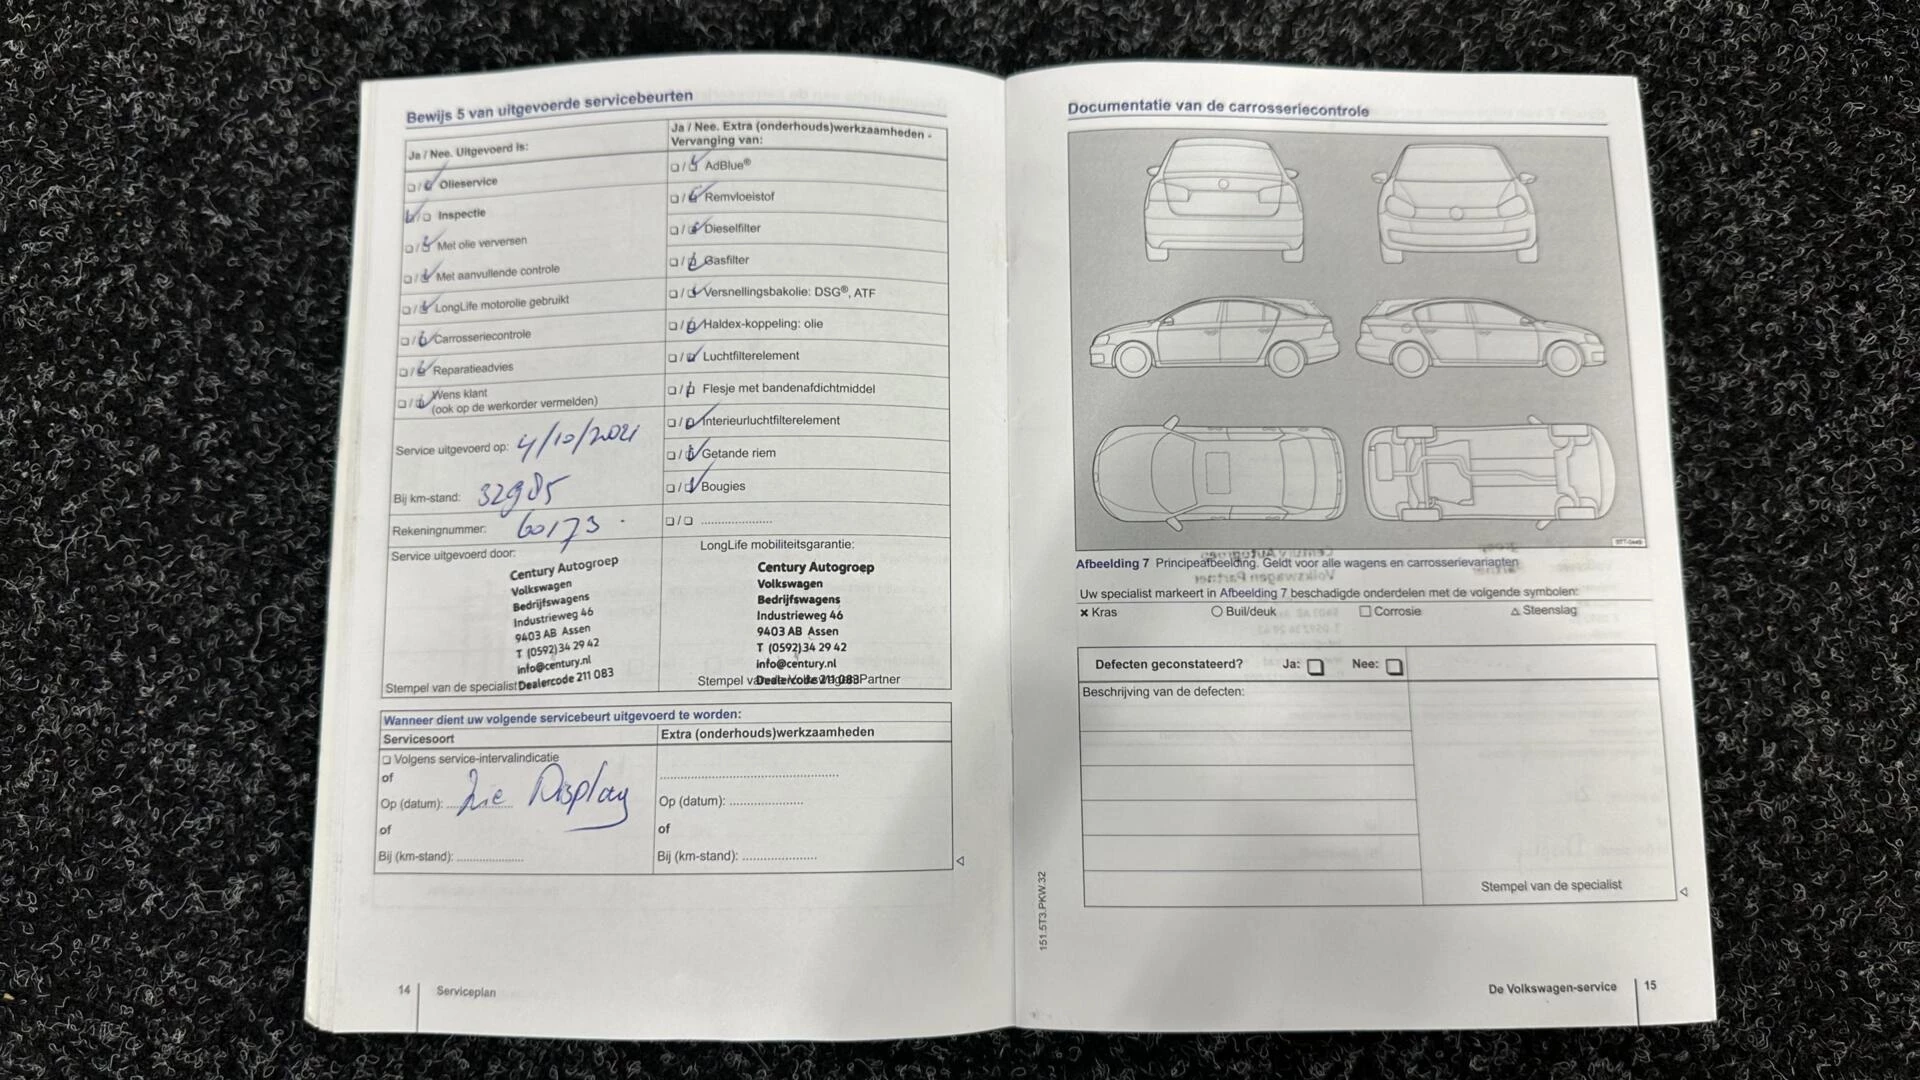 Bewijs 5 van uitgevoerde servicebeurten
Ja / Nee. Uitgevoerd is:
Olieservice
Inspectie
Met olie verversen
Met aanvullende controle
LongLife motorolie gebruikt
Carrosseriecontrole
Reparatieadvies
Wens klant
(ook op de werkorder vermelden)
Service uitgevoerd op: 4/10/2021
Bij km-stand: 32985
Rekeningnummer: 60173
Service uitgevoerd door:
Century Autogroep
Volkswagen
Bedrijfswagens
Industrieweg 46
9403 AB Assen
T (0592) 34 29 42
info@century.nl
Dealercode 211 083
Stempel van de specialist
Ja / Nee. Extra (onderhouds)werkzaamheden -
Vervanging van:
AdBlue®
Remvloeistof
Dieselfilter
Gasfilter
Versnellingsbakolie: DSG®, ATF
Haldex-koppeling: olie
Luchtfilterelement
Flesje met bandenafdichtmiddel
Interieurluchtfilterelement
Getande riem
Bougies
....................
LongLife mobiliteitsgarantie:
Century Autogroep
Volkswagen
Bedrijfswagens
Industrieweg 46
9403 AB Assen
T (0592) 34 29 42
info@century.nl
Dealercode 211 083
Stempel van de Volkswagen Partner
Wanneer dient uw volgende servicebeurt uitgevoerd te worden:
Servicesoort
Volgens service-intervalindicatie
of
Op (datum): Zie Display
of
Bij (km-stand): ....................
Extra (onderhouds)werkzaamheden
Op (datum): ....................
of
Bij (km-stand): ....................
14 Serviceplan
Documentatie van de carrosseriecontrole
Afbeelding 7 Principeafbeelding. Geldt voor alle wagens en carrosserievarianten
Uw specialist markeert in Afbeelding 7 beschadigde onderdelen met de volgende symbolen:
Kras Buil/deuk Corrosie Steenslag
Defecten geconstateerd? Ja: Nee:
Beschrijving van de defecten:
Stempel van de specialist
151.5T3.PKW.32
De Volkswagen-service 15